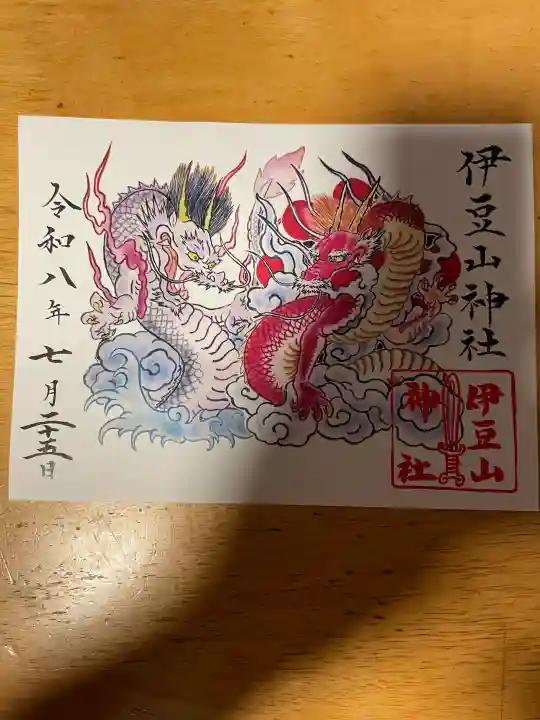 伊豆山神社
伊豆山
神社
令和八年七月二十五日